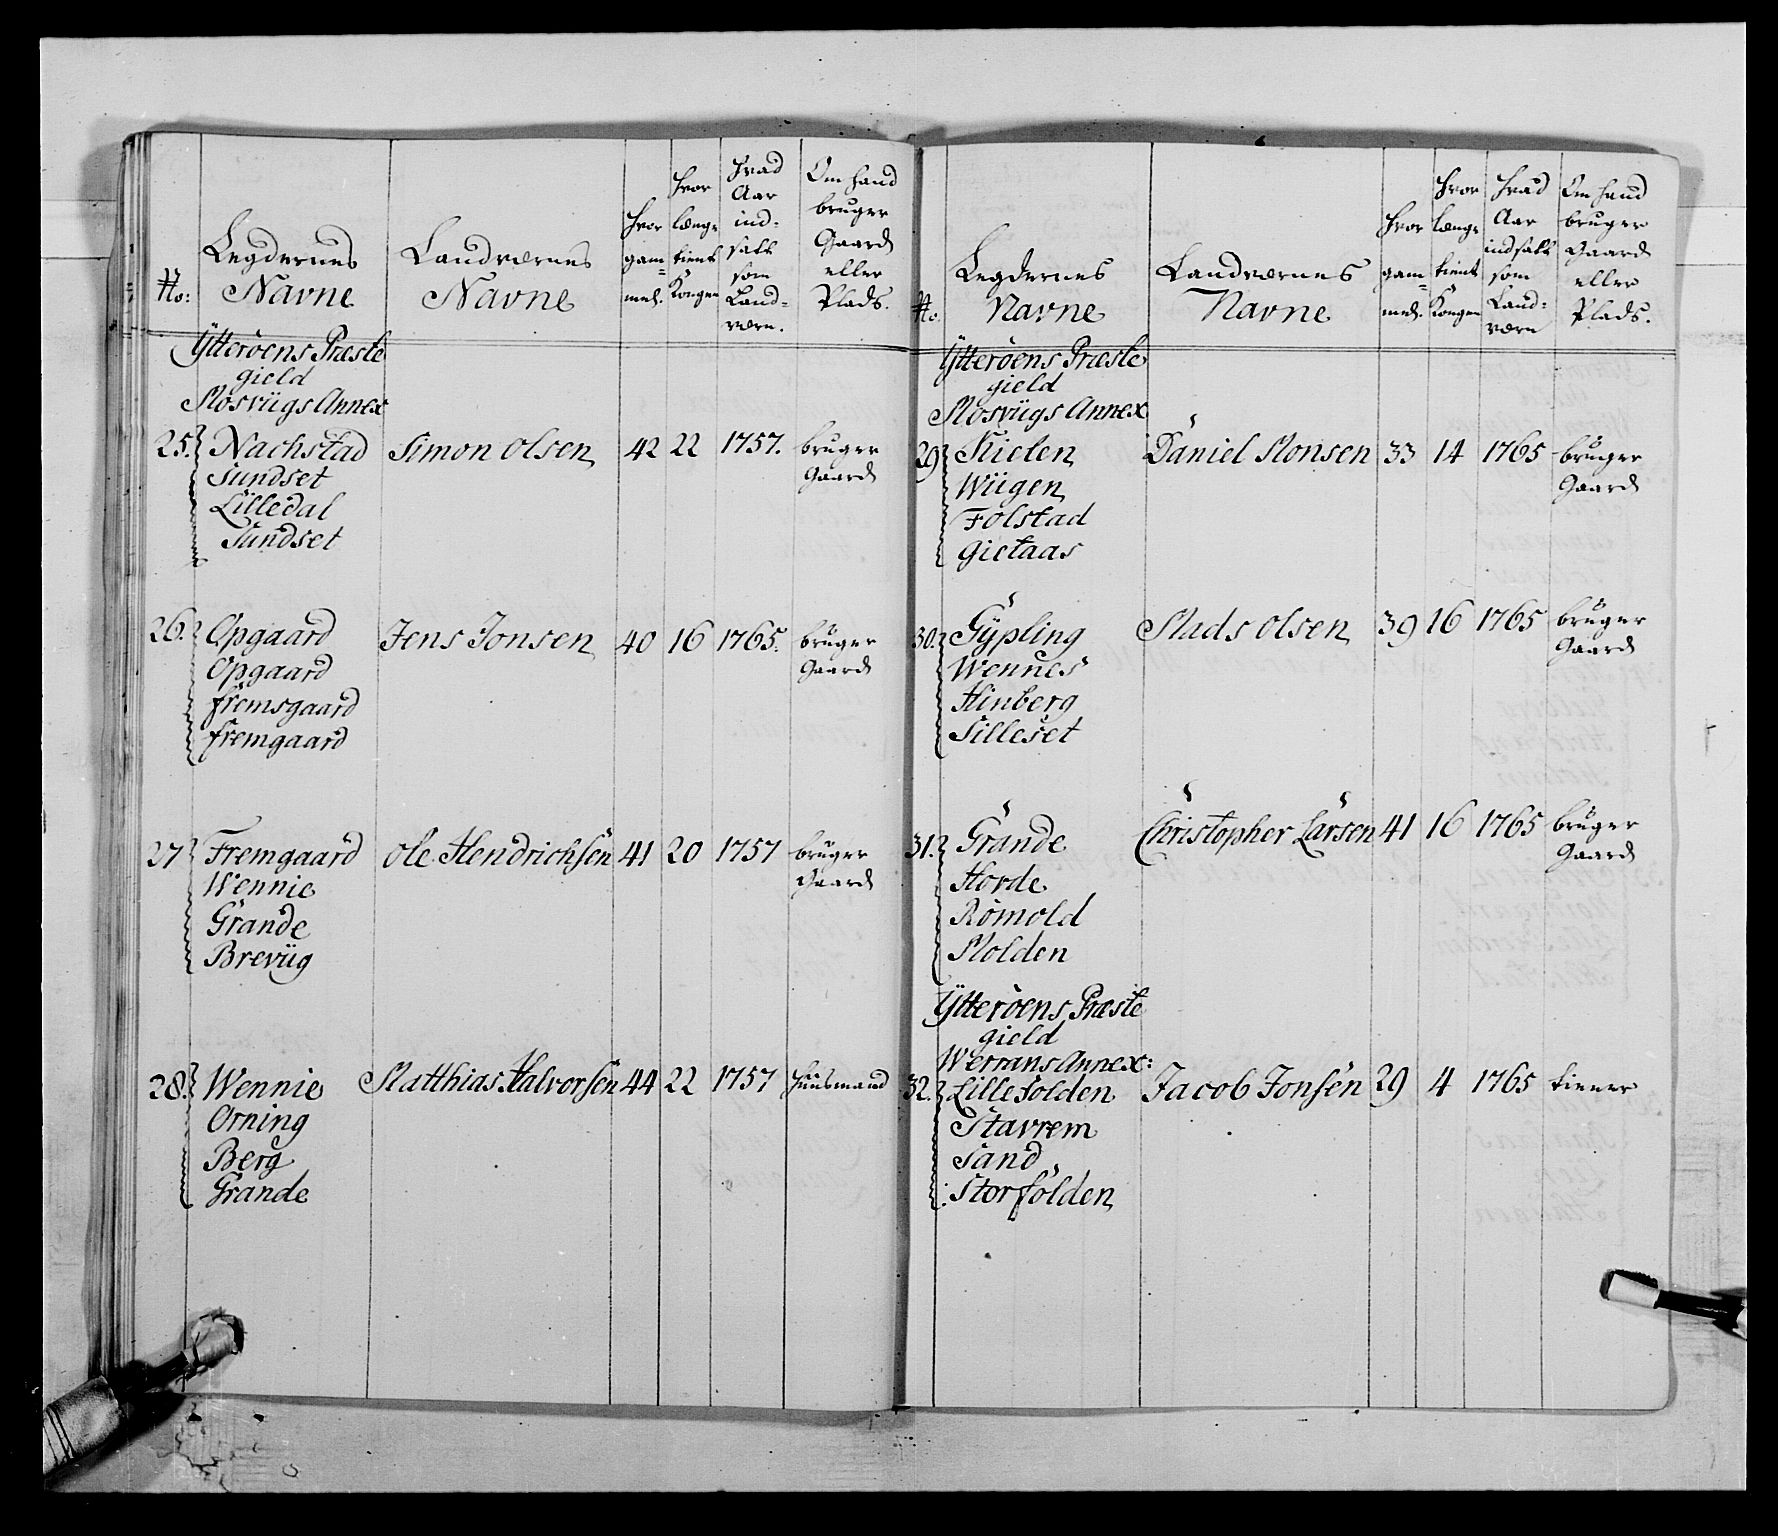 No:
Legdernes
Navne
Landværnes
Navne
Hvor
gam=
mel.
Hvor
længe
tient
Kongen
Hvad
Aar
ind=
satt
som
Land=
værn.
Om hand
bruger
Gaard
eller
Plads.
Ytterøens Præste
gield
Mosviigs Annex
25. Nachstad Simon Olsen 42 22 1757. bruger
Sundset Gaard
Lilledal
Sundset
26. Opgaard Jens Jonsen 40 16 1765. bruger
Opgaard Gaard
Fremsgaard
Fremgaard
27 Fremgaard Ole Hendrichsen 41 20 1757 bruger
Wennie Gaard
Grande
Breviig
28. Wennie Matthias Halvorsen 44 22 1757 Huusmand
Orning
Berg
Grande
No
Legdernes
Navne
Landværnes
Navne
Hvor
gam=
mel.
Hvor
længe
tient
Kongen
Hvad
Aar
indsatt
som
Land=
værn
Om hand
bruger
Gaard
eller
Plads.
Ytterøens Præste
gield
Mosviigs Annex
29 Kielen Daniel Monsen 33 14 1765 bruger
Wiigen Gaard
Folstad
Gietaas
30. Gÿpling Mads Olsen 39 16 1765 bruger
Wennes Gaard
Hinberg
Silleset
31. Grande Christopher Larsen 41 16 1765 bruger
Horde Gaard
Rømold
Molden
Ytterøens Præste
gield
Werrans Annex:
32. Lille Folden Jacob Jonsen 29 4 1765 tiener
Stavrem
Sand
Storfolden